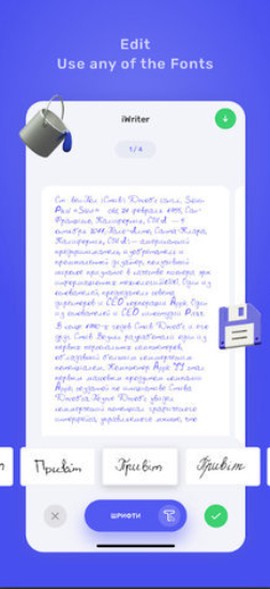 Edit
Use any of the Fonts
iWriter
1/4
Франциско, Калифорния, США — 5
октября 2011, Пало-Алто, Санта-Клара,
Калифорния, США) — американский
предприниматель, изобретатель и
промышленный дизайнер, получивший
широкое признание в качестве пионера эры
информационных технологий. Один из
основателей, председатель совета
директоров и CEO корпорации Apple. Один
из основателей и CEO киностудии Pixar.
В конце 1970-х годов Стив Джобс и его
друг Стив Возняк разработали один из
первых персональных компьютеров,
обладавший большим коммерческим
потенциалом. Компьютер Apple II стал
первым массовым продуктом компании
Apple, по инициативе Стива
Джобса. Позже Джобс увидел
коммерческий потенциал графического
интерфейса, управляемого мышью, что
Привіт Привіт Привіт
ШРИФТИ